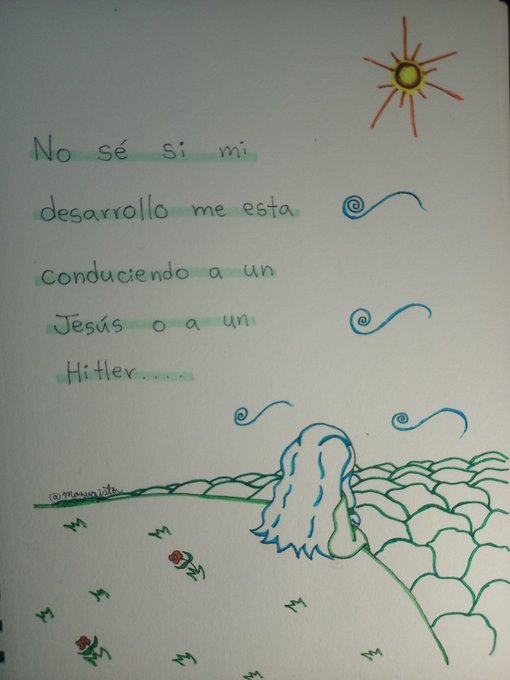 No sé si mi
desarrollo me esta
conduciendo a un
Jesús o a un
Hitler....
@masugista